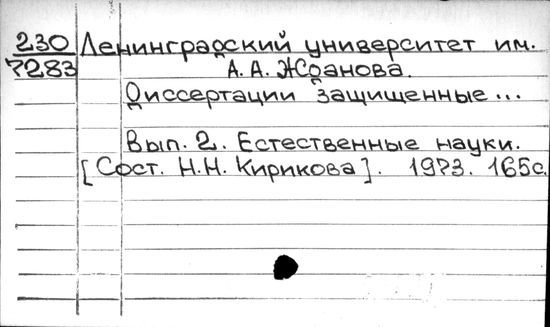 230 Ленинградский университет им.
7283 А. А. Жданова.
Диссертации защищенные...
Вып. 2. Естественные науки.
[Сост. Н.Н. Кирикова]. 1973. 165с.